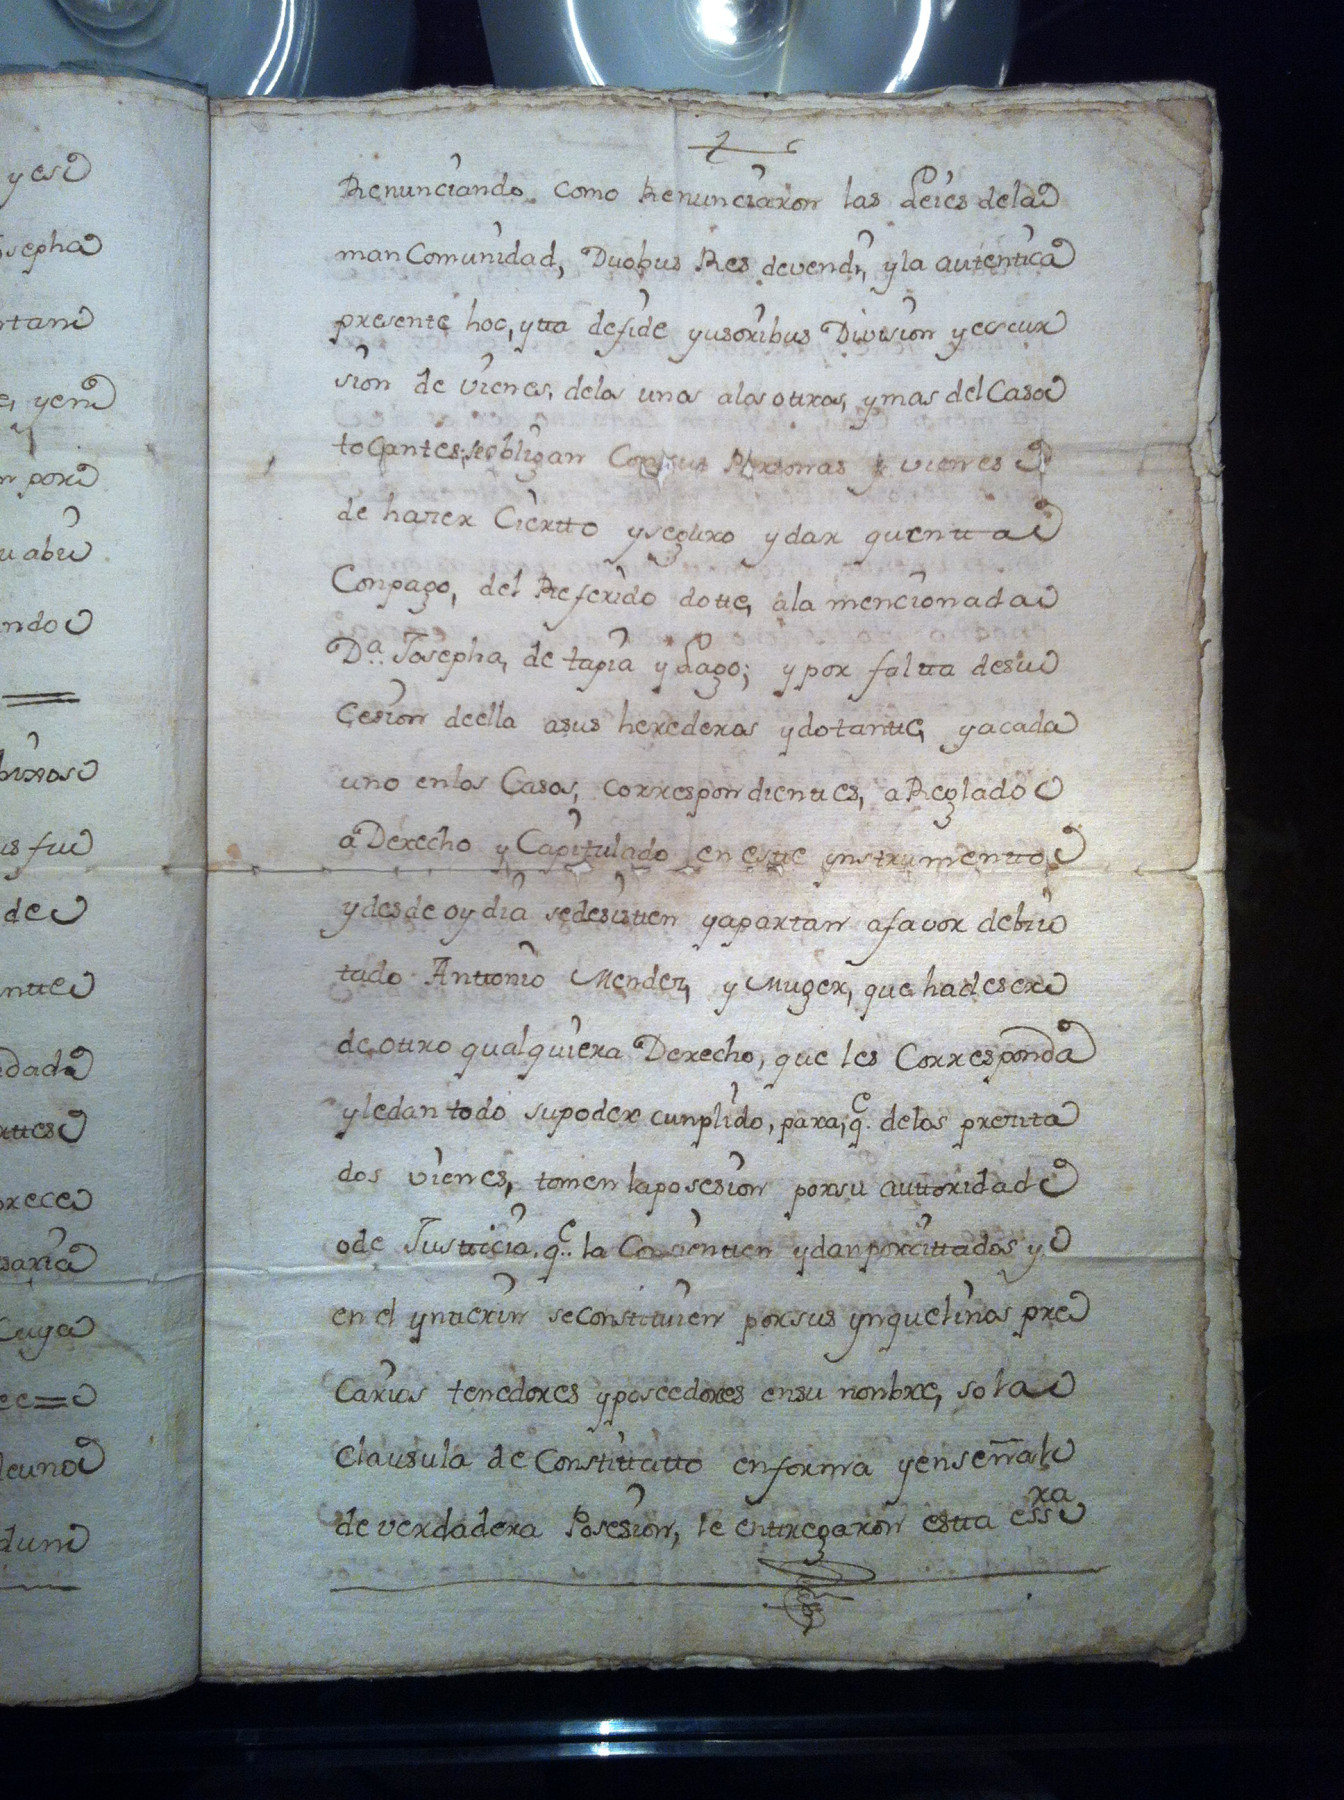 yesi
Renunciando como Renunciaron las Leies dela
sepha
man Comunidad, Duobus Res devendi, yla autentica
rtam
presente hoc, ytta defide yusoribus Division yescur
e, yen
sion de vienes, delos unos alos otros, ymas del Caso
n por
tocantes; seobligan Consus Personas y vienes
u abu
de hazer Ciertto yseguro ydar quentta
ndo
Conpago, del Referido dotte, ala mencionada
Dª. Josepha, de tapia y Lago; ypor faltta desu
Cesion deella asus herederos ydotantte, yacada
uno enlos Casos, correspondienttes, aReglado
us fue
a Derecho y Capitulado en estte ynstrumentto
de
ydesde oydia sedesistten yapartan afavor debiu
ntte
tado Anttonio Mendez, y Muger, que hadeser
dada
de ottro qualquiera Derecho, que les Corresponda
rttes
yledan todo supoder cunplido, para, q.e delos prezita
rece
dos vienes, tomen laposesion porsu auttoridad
saria
ode Justticia. q.e la Consientten ydanporcittados y
Cuya
en el yntterin seconstittuien porsus ynquelinos pre
ee=
Carios tenedores yposeedores ensu nonbre, sola
leuno
Clausula de Constitutto enforma yenseñal
dum
de verdadera Posesion, le enttregaron estta essra